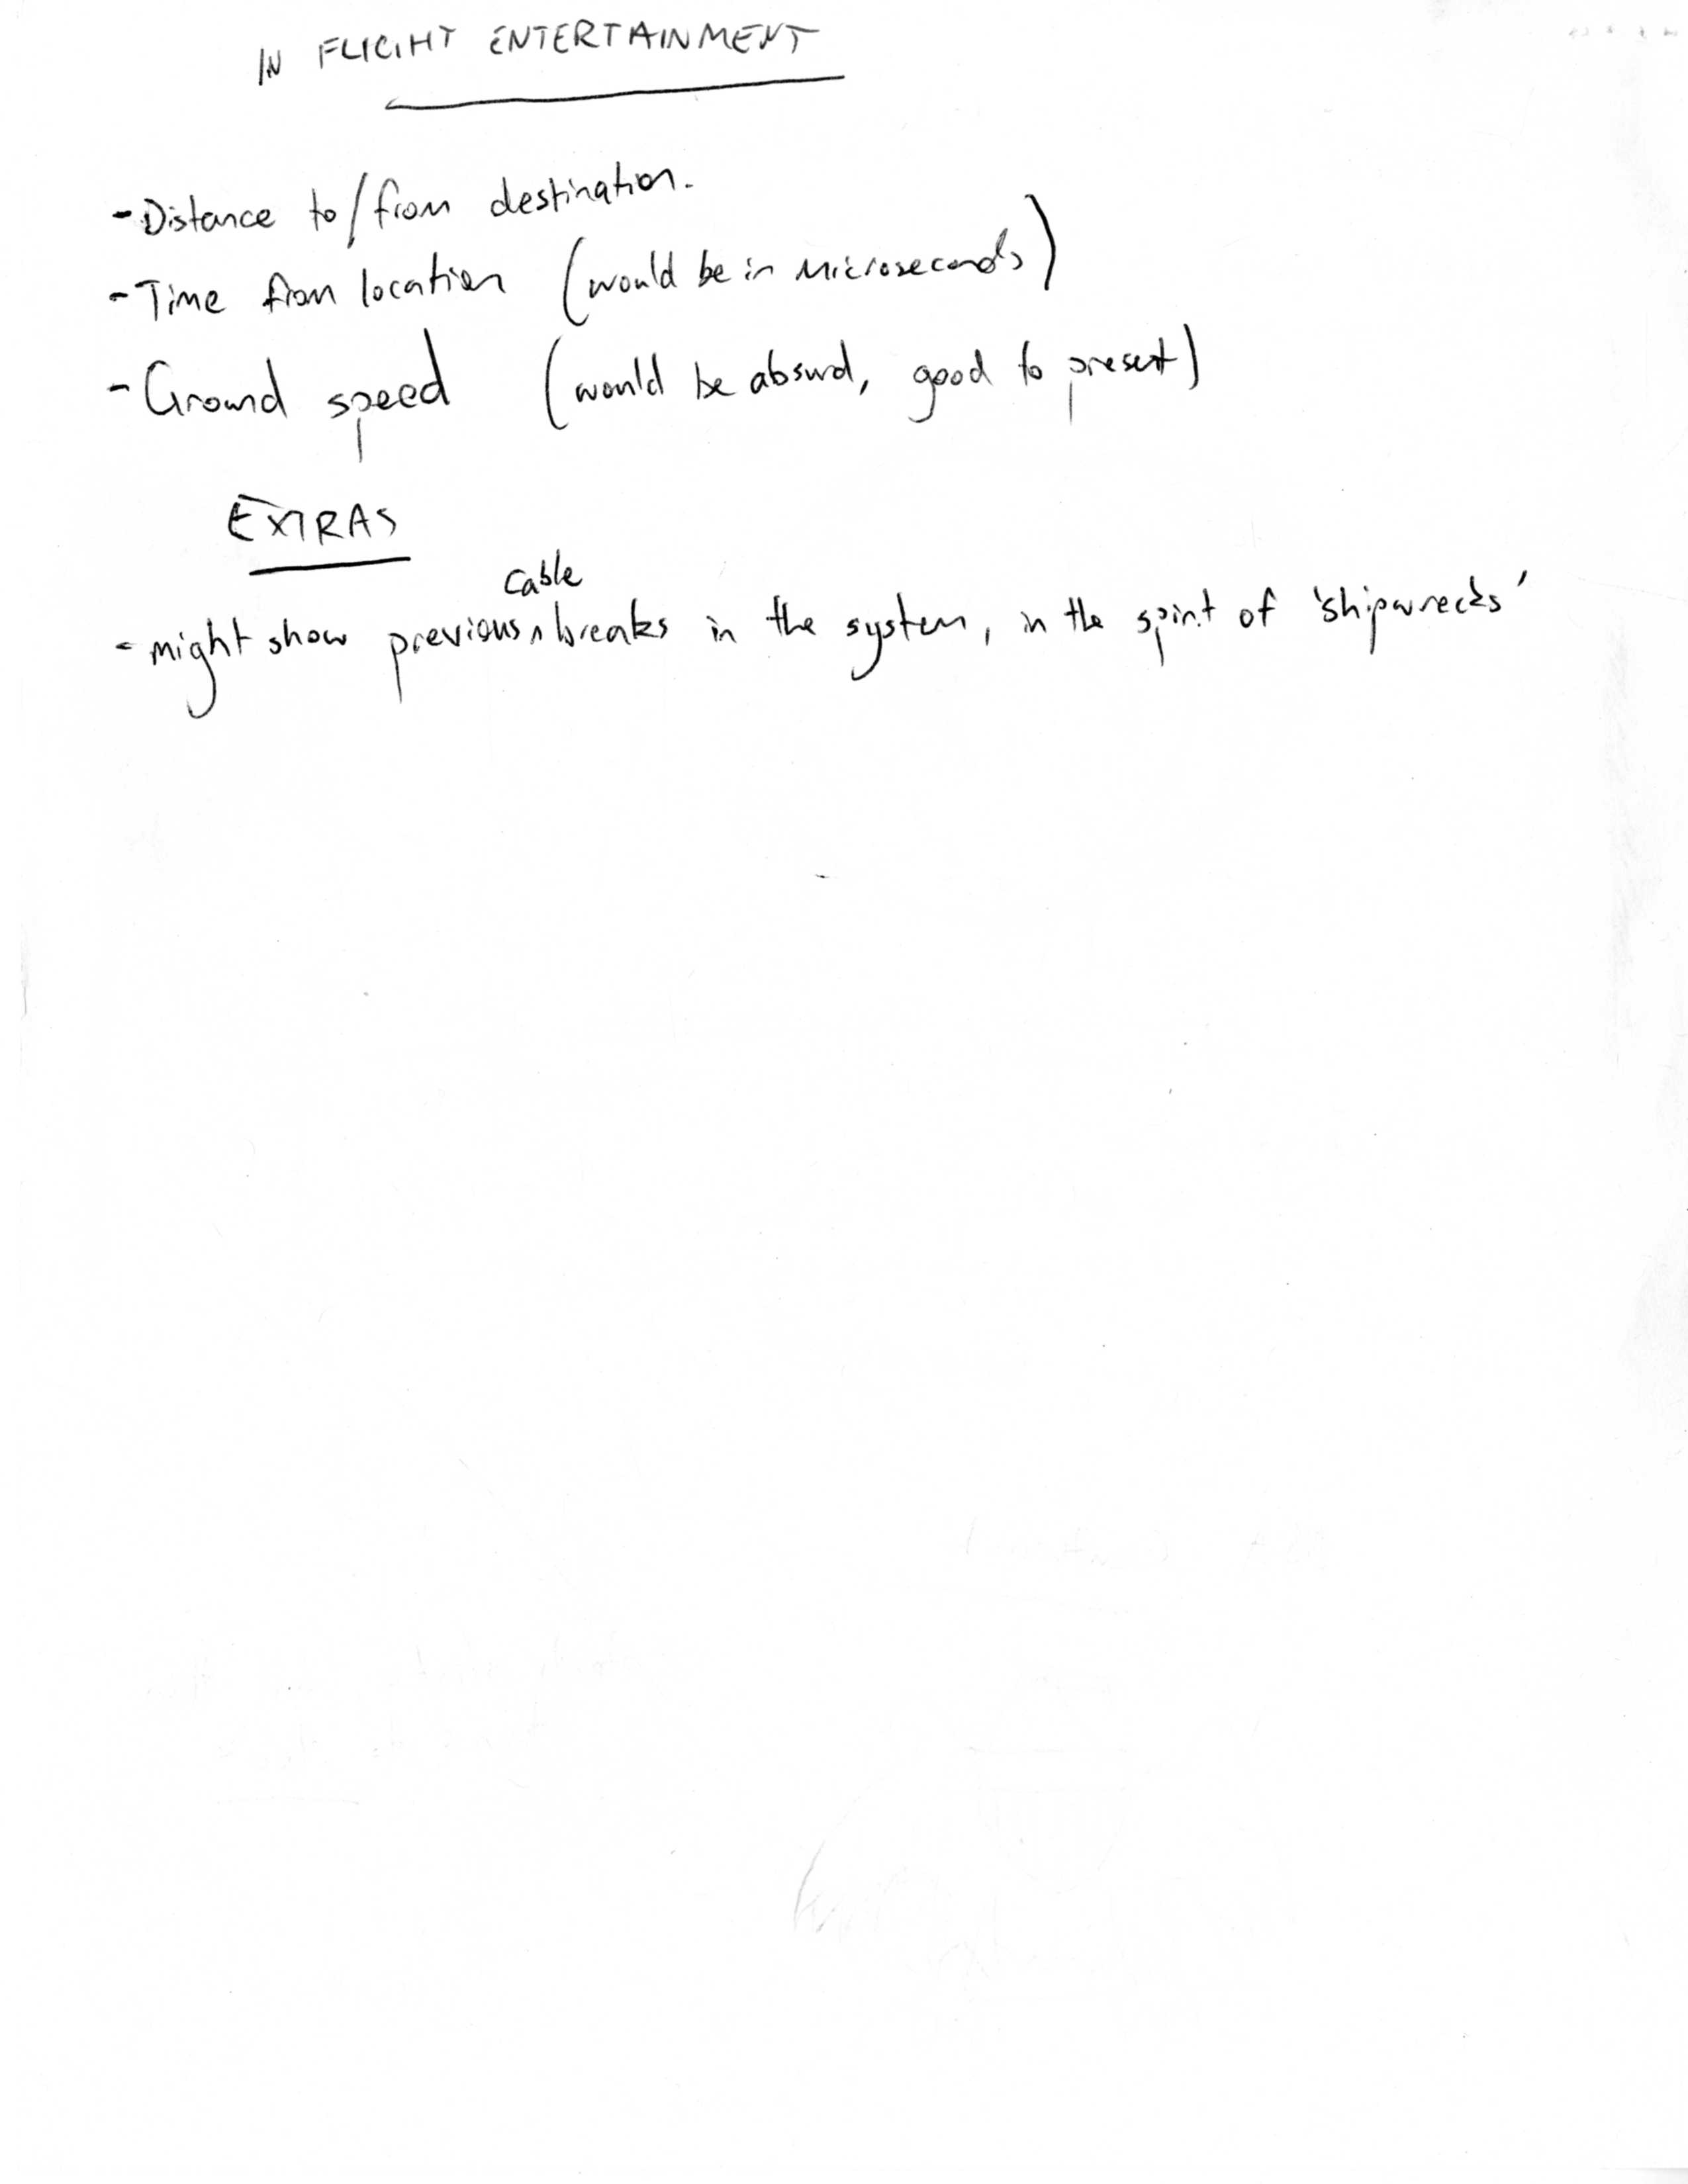 IN FLIGHT ENTERTAINMENT
- Distance to/from destination.
- Time from location (would be in microseconds)
- Ground speed (would be absurd, good to present)
EXTRAS
- might show previous cable breaks in the system, in the spirit of 'shipwrecks'